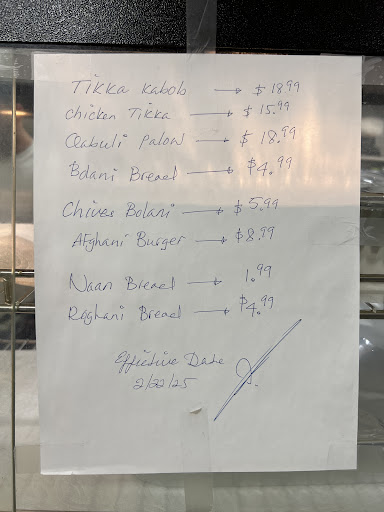 Tikka Kabob → $18.99
Chicken Tikka → $15.99
Qabuli Palow → $18.99
Bdani Bread → $4.99
Chives Bolani → $5.99
Afghani Burger → $8.99
Naan Bread → 1.99
Roghani Bread → $4.99
Effictive Date
2/22/25